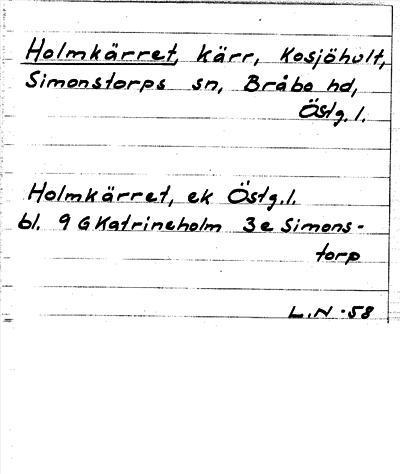 Holmkärret, kärr, Kosjöhult,
Simonstorps sn, Bråbo hd,
Östg.l.
Holmkärret, ek Östg.l.
bl. 9 G Katrineholm 3e Simons-
torp
L.N -58